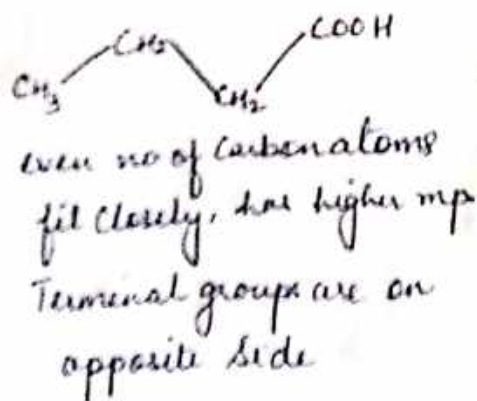 COOH
CH2
CH3
CH2
even no of Carbon atoms
fit closely, has higher mp
Terminal groups are on
opposite side